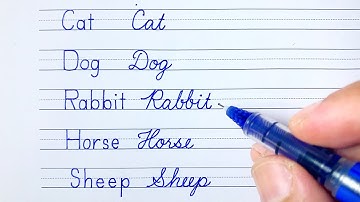 Cat Cat
Dog Dog
Rabbit Rabbit
Horse Horse
Sheep Sheep